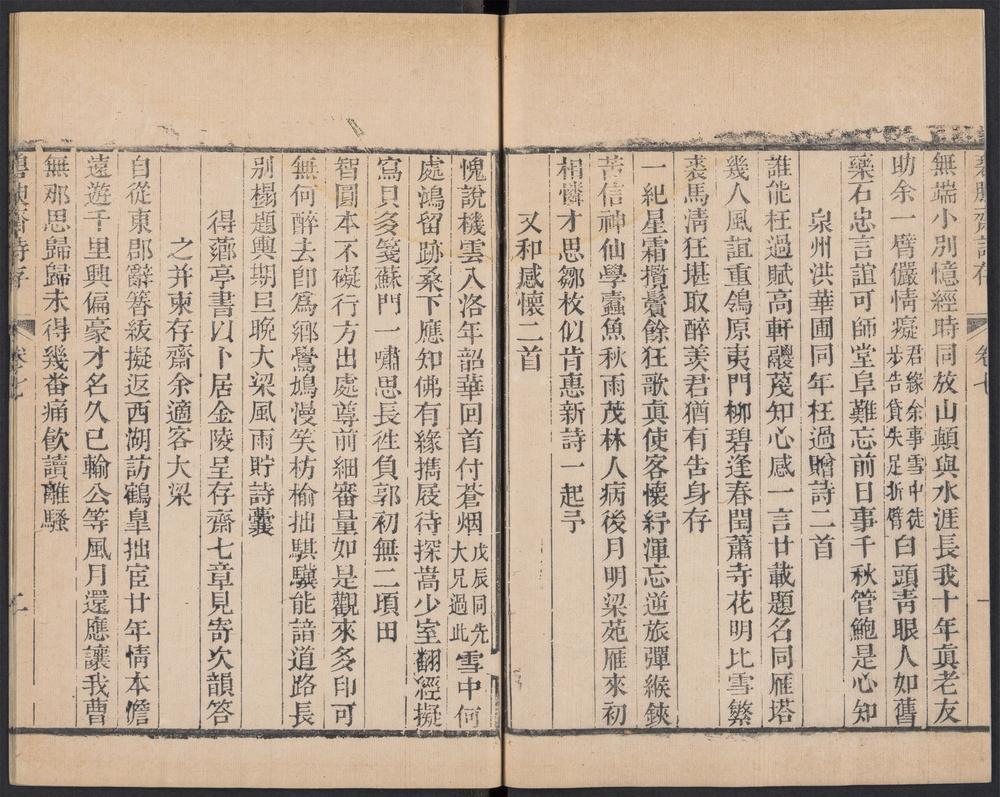 卷七
無端小別憶經時同放山顛與水涯長我十年真老友
助余一臂儼情癡君緣余事雪中徒步告貸失足折臂白頭青眼人如舊
藥石忠言誼可師堂阜難忘前日事千秋管鮑是心知
泉州洪華圃同年枉過贈詩二首
誰能枉過賦高軒醊蔑知心感一言廿載題名同雁塔
幾人風誼重鴒原夷門柳碧逢春閏蕭寺花明比雪繁
裘馬清狂堪取醉羨君猶有舌身存
一紀星霜攬鬢餘狂歌真使客懷紓渾忘逆旅彈緱鋏
苦信神仙學蠹魚秋雨茂林人病後月明梁苑雁來初
相憐才思鄒枚似肯惠新詩一起予
又和感懷二首
愧說機雲入洛年韶華回首付蒼烟戊辰同先大兄過此雪中何
處鴻留跡桑下應知佛有緣攜屐待探嵩少室翻經擬
寫貝多箋蘇門一嘯思長往負郭初無二頃田
智圓本不礙行方出處尊前細審量如是觀來多印可
無何醉去卽爲鄉鷽鳩漫笑枋榆拙騏驥能諳道路長
别榻題輿期旦晚大梁風雨貯詩囊
得蘅亭書以卜居金陵呈存齋七章見寄次韻答
之并柬存齋余適客大梁
自從東郡辭簪紱擬返西湖訪鶴皇拙宦廿年情本儋
遠遊千里興偏豪才名久已輸公等風月還應讓我曹
無那思歸歸未得幾番痛飲讀離騷
卷七